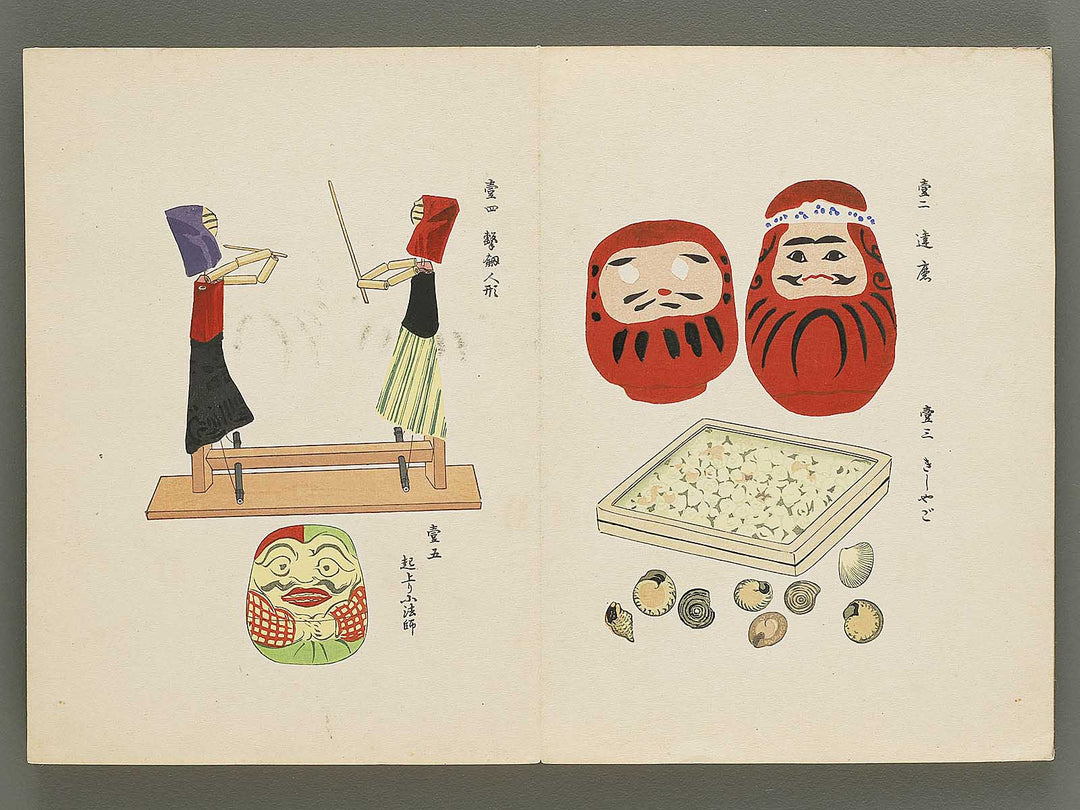 壹二 達磨
壹三 きしやご
壹四 擊劔人形
壹五
起上り小法師